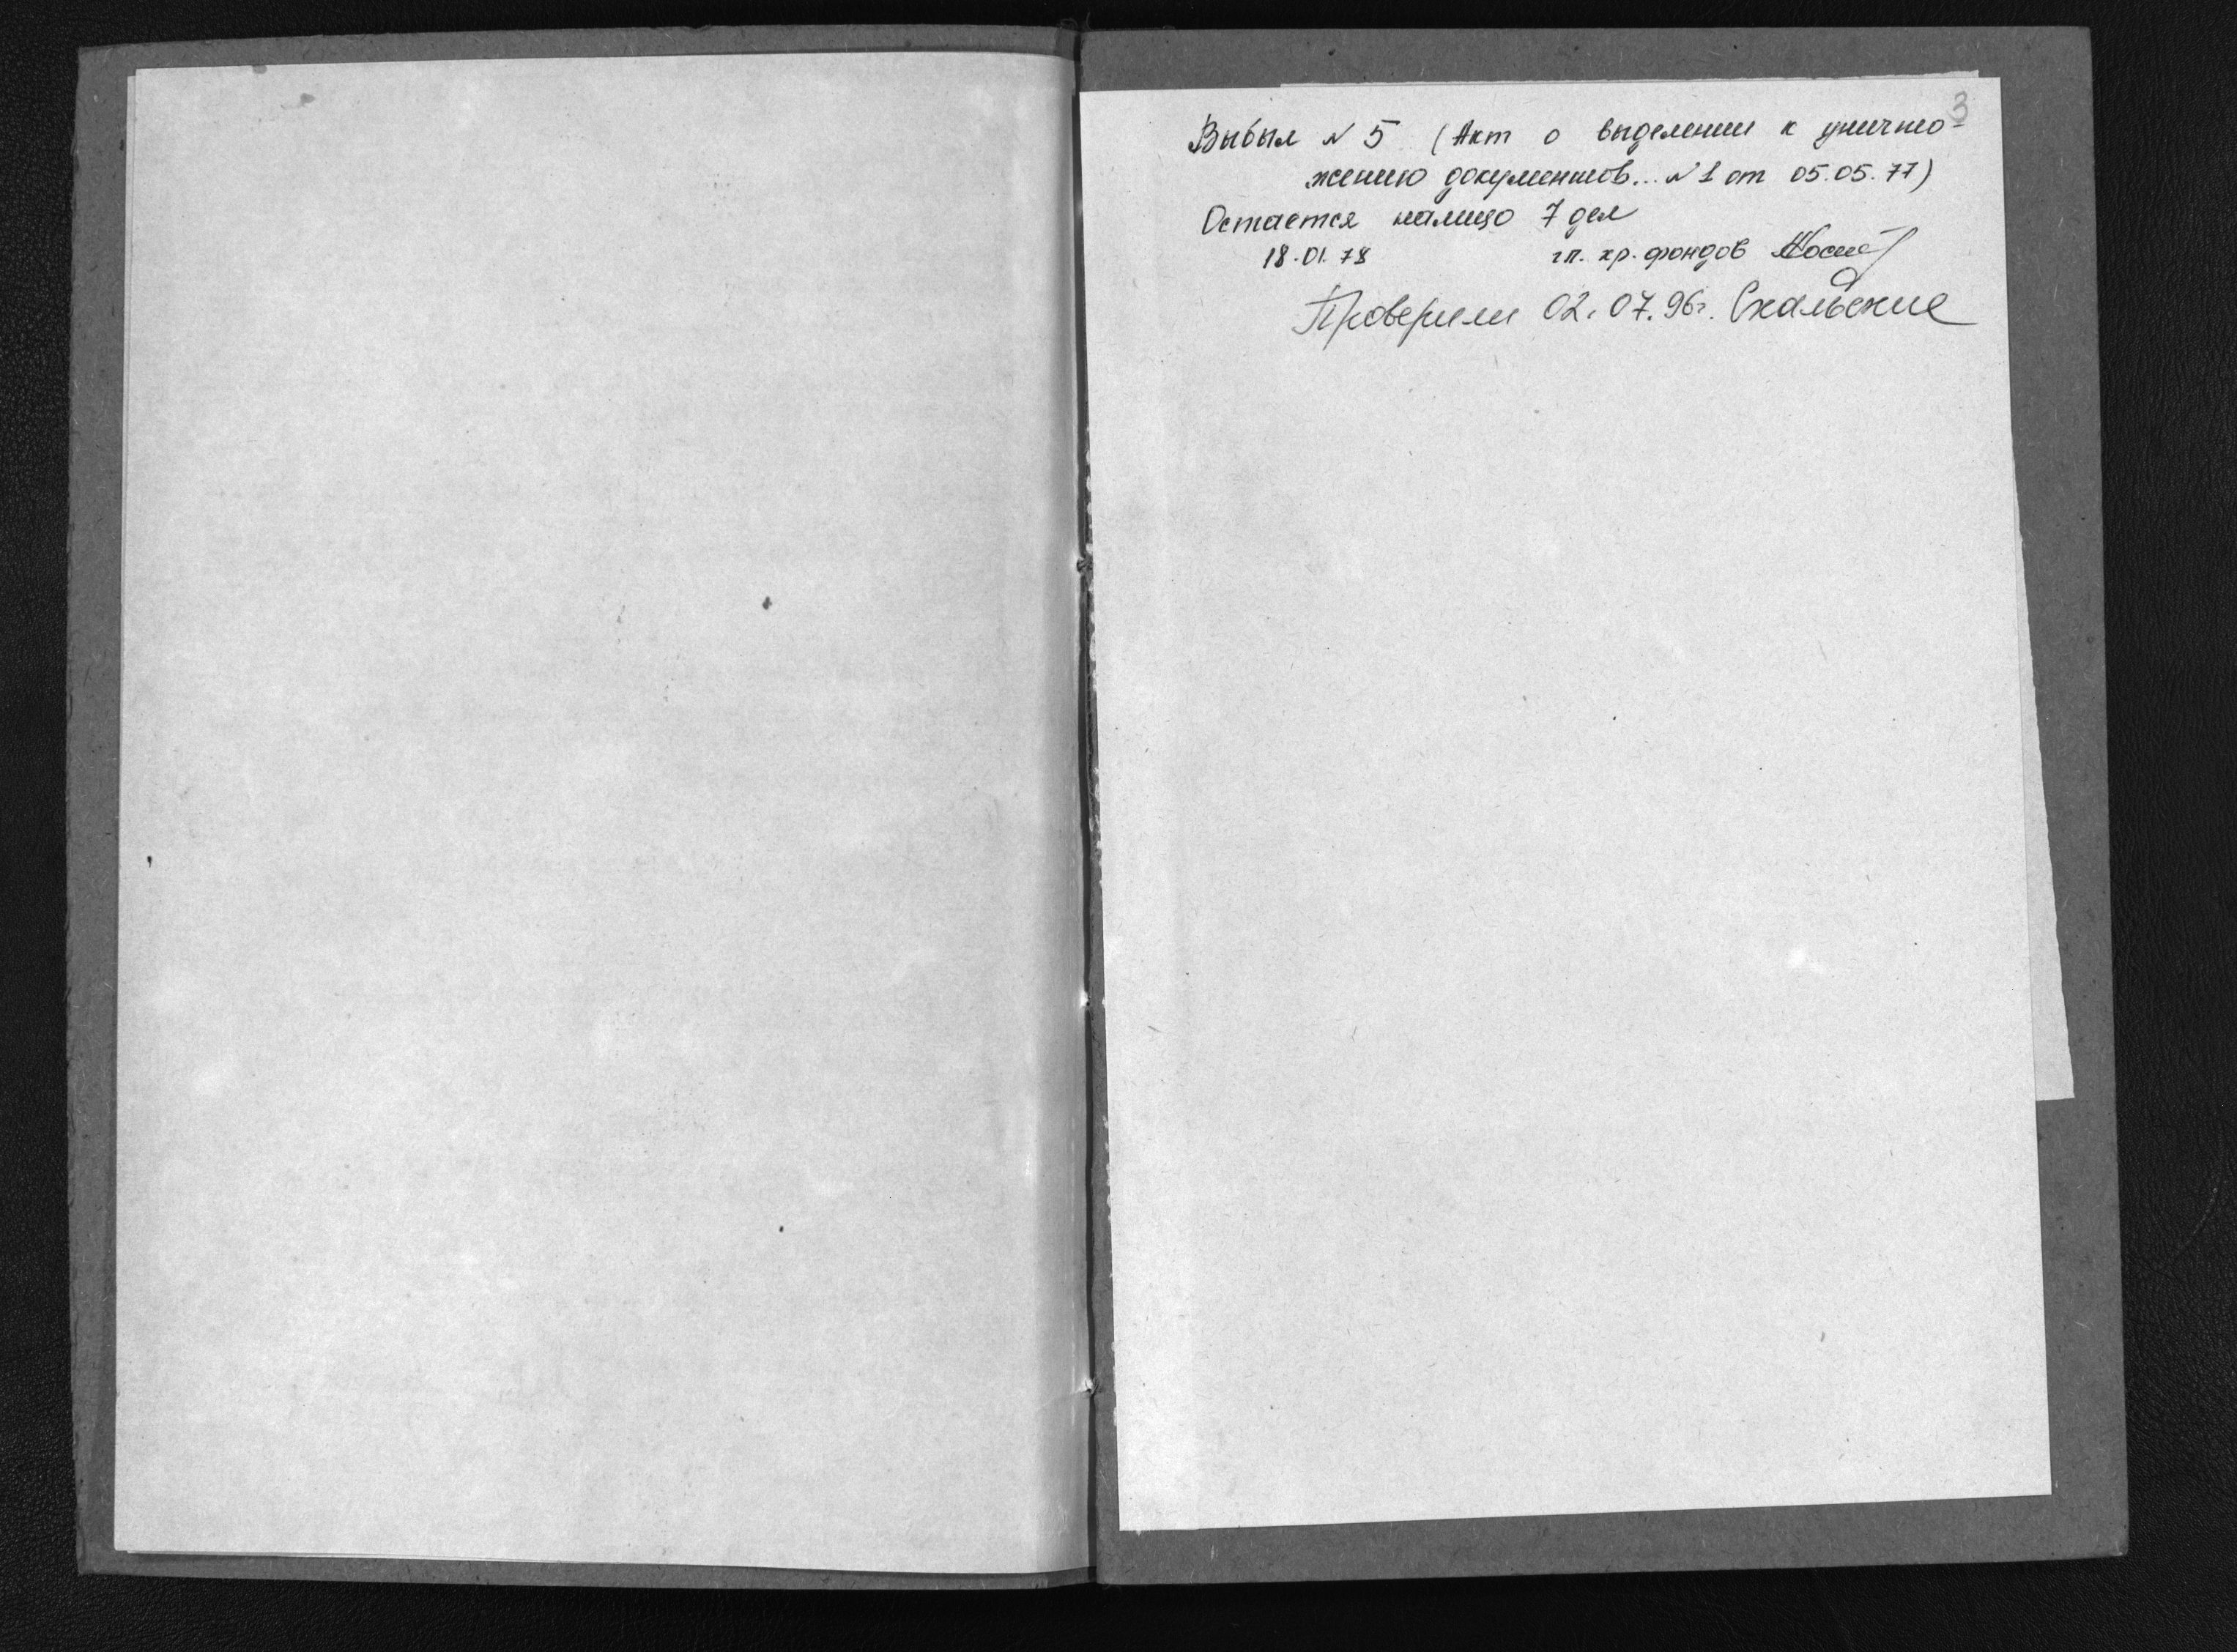 3
Выбыл № 5 (Акт о выделении к уничто-
жению документов... № 1 от 05.05.77)
Остается налицо 7 дел
18.01.78 гл. хр. фондов
Проверили 02.07.96г. Скальские